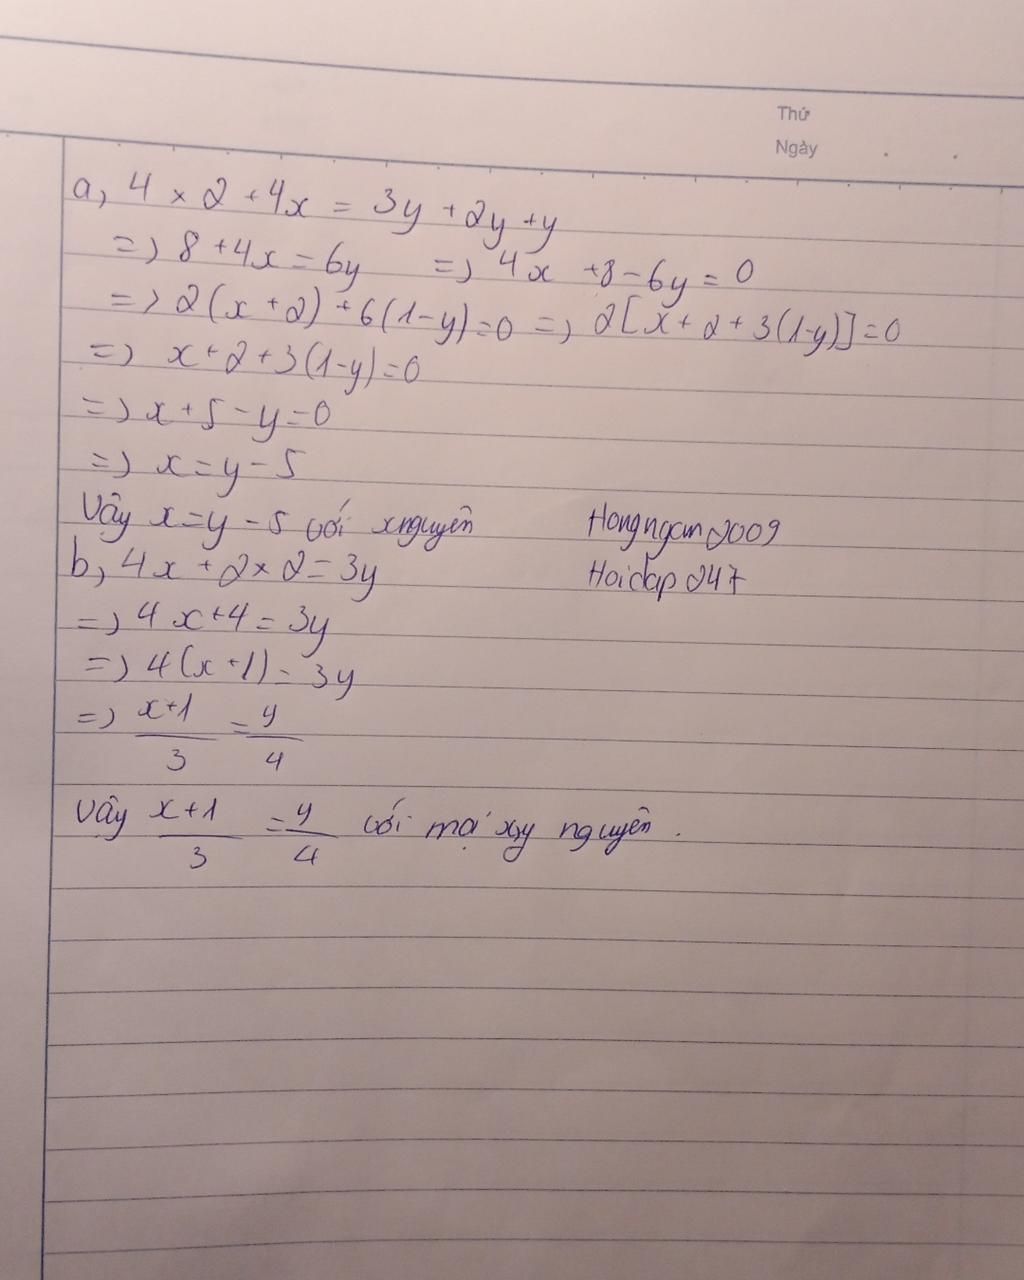 Thứ
Ngày
a, 4 × 2 + 4x = 3y + 2y + y
=> 8 + 4x = 6y => 4x + 8 - 6y = 0
=> 2(x + 2) + 6(1 - y) = 0 => 2[x + 2 + 3(1-y)] = 0
=> x + 2 + 3(1-y) = 0
=> x + 5 - y = 0
=> x = y - 5
Vậy x = y - 5 với x nguyên Hongngam2009
b, 4x + 2 × 2 = 3y Hoidap247
=> 4x + 4 = 3y
=> 4(x + 1) = 3y
=> x+1/3 = y/4
Vậy x+1/3 = y/4 với mọi x,y nguyên.